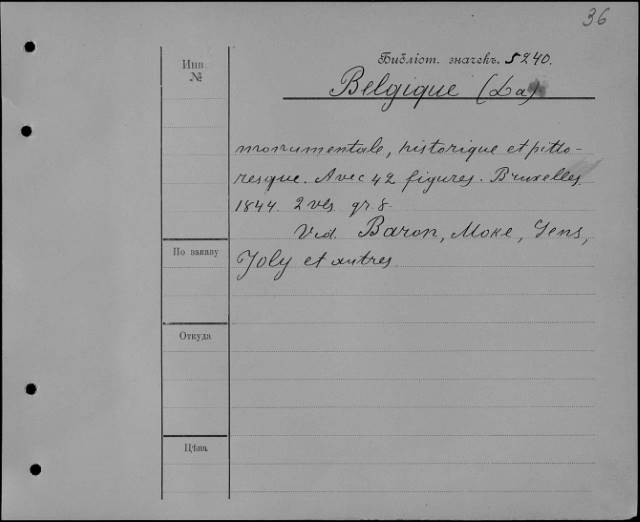 36
Инв. №
Библіот. значекъ. 5240.
Belgique (La)
monumentale, historique et pitto-
resque. Avec 42 figures. Bruxelles
1844. 2 vls gr. 8
Vid. Baron, Moke, Gens,
Joly et autres
По заказу
Откуда
Цѣна